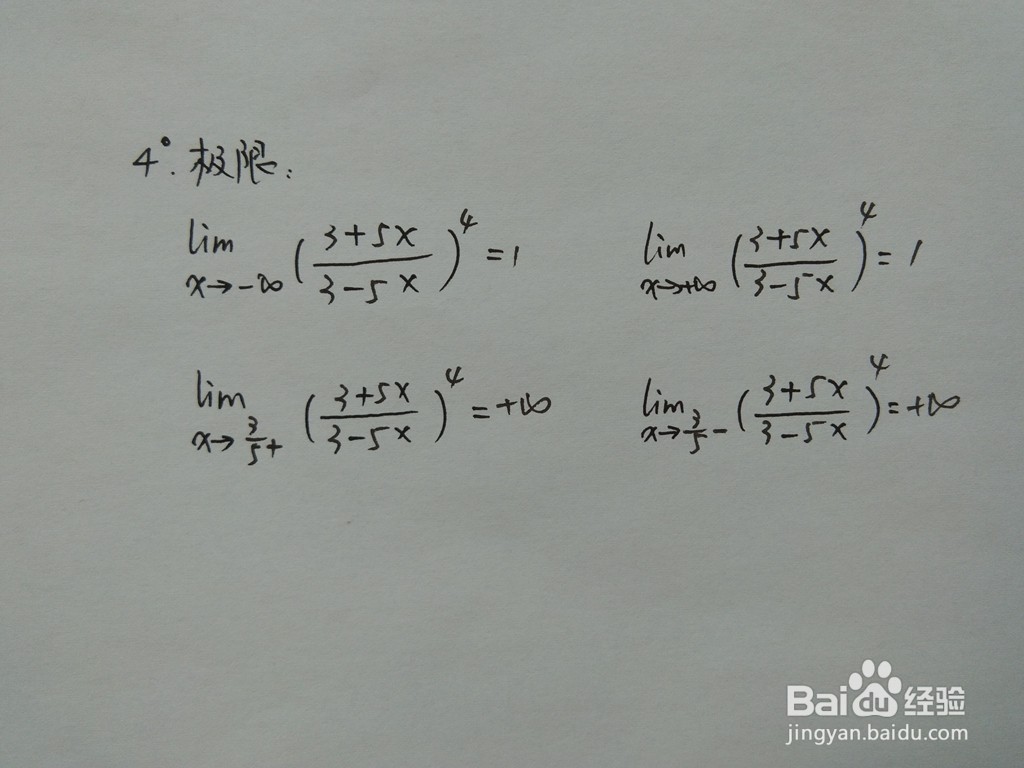 4°. 极限:
lim x→-∞ (3+5x / 3-5x)^4 = 1
lim x→+∞ (3+5x / 3-5x)^4 = 1
lim x→3/5+ (3+5x / 3-5x)^4 = +∞
lim x→3/5- (3+5x / 3-5x)^4 = +∞
Bai du 经验
jingyan.baidu.com